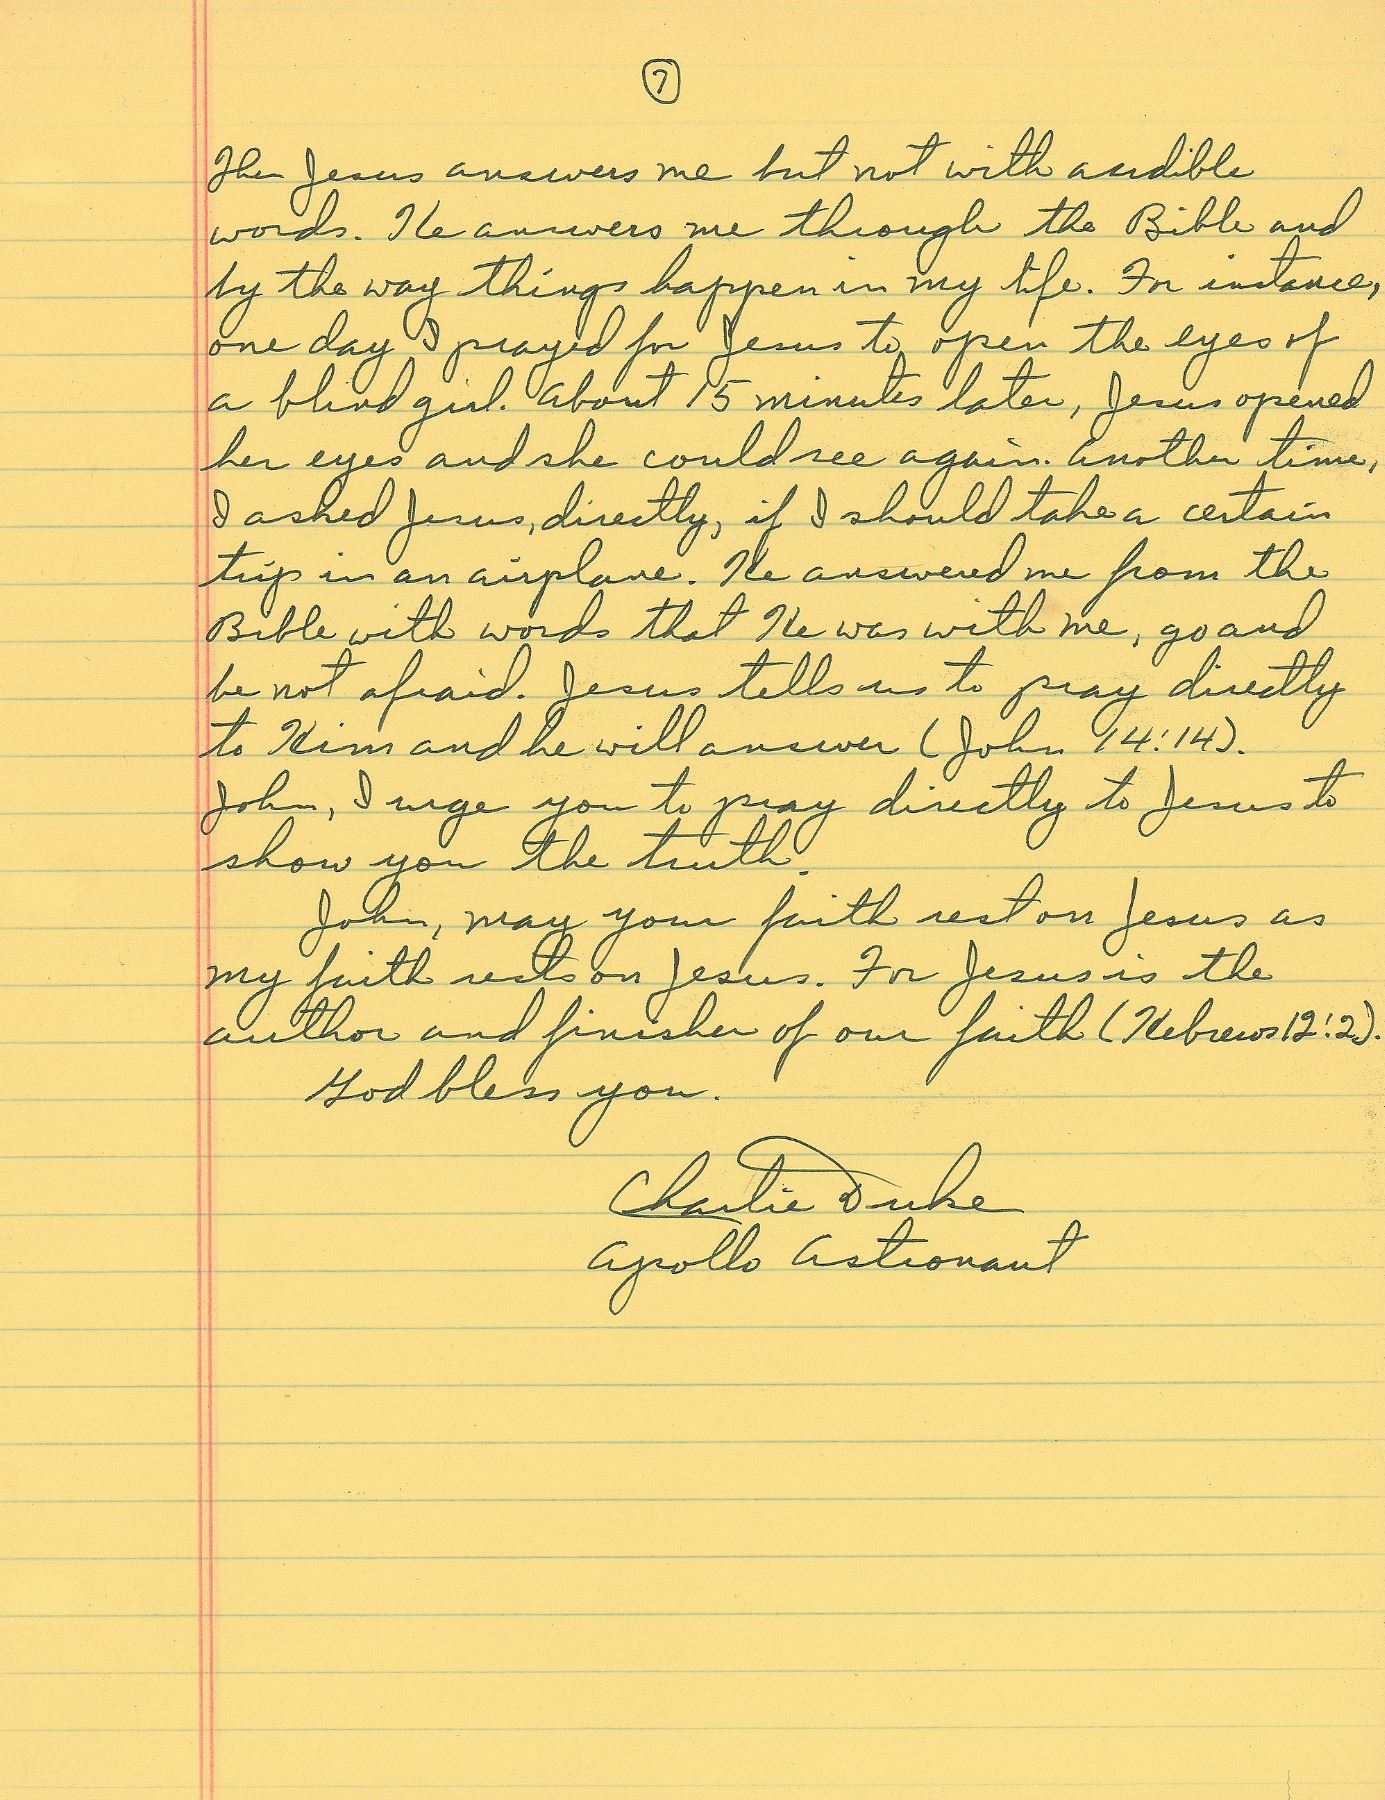 7
Then Jesus answers me but not with audible
words. He answers me through the Bible and
by the way things happen in my life. For instance,
one day I prayed for Jesus to open the eyes of
a blind girl. About 15 minutes later, Jesus opened
her eyes and she could see again. Another time,
I asked Jesus, directly, if I should take a certain
trip in an airplane. He answered me from the
Bible with words that He was with me, go and
be not afraid. Jesus tells us to pray directly
to Him and he will answer (John 14:14).
John, I urge you to pray directly to Jesus to
show you the truth.
John, may your faith rest on Jesus as
my faith rests on Jesus. For Jesus is the
author and finisher of our faith (Hebrews 12:2).
God bless you.
Charlie Duke
Apollo Astronaut